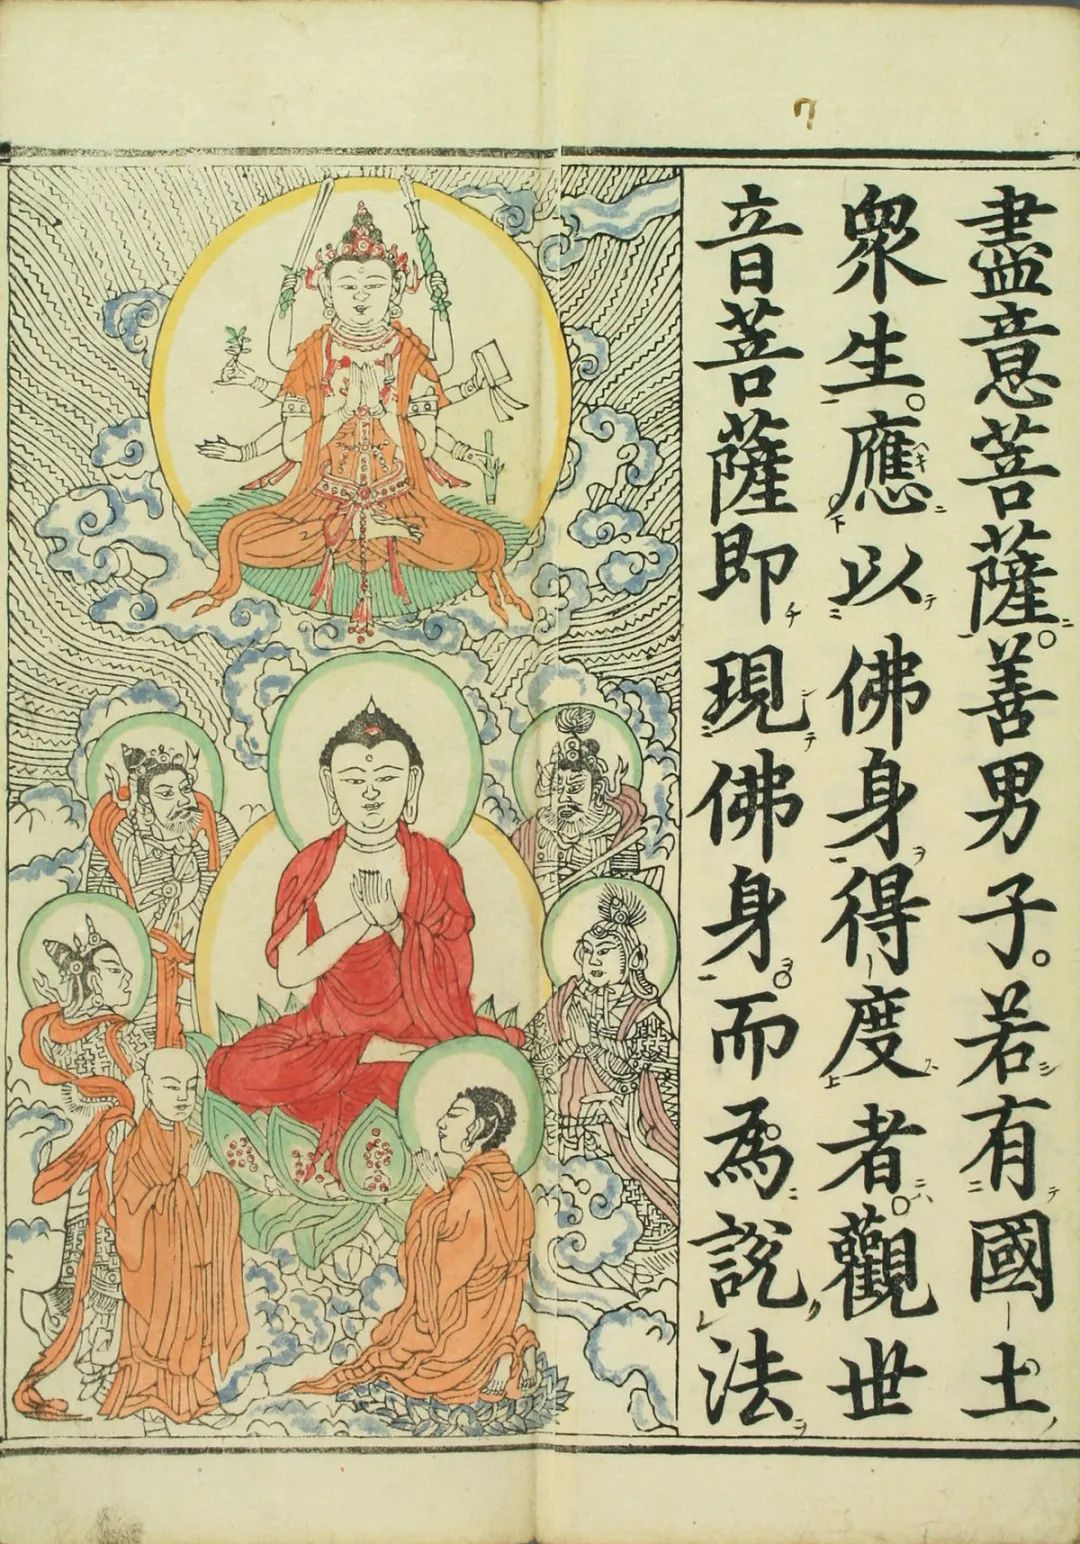 7
盡意菩薩。善男子。若有國土
衆生。應以佛身得度者。觀世
音菩薩即現佛身。而為說法